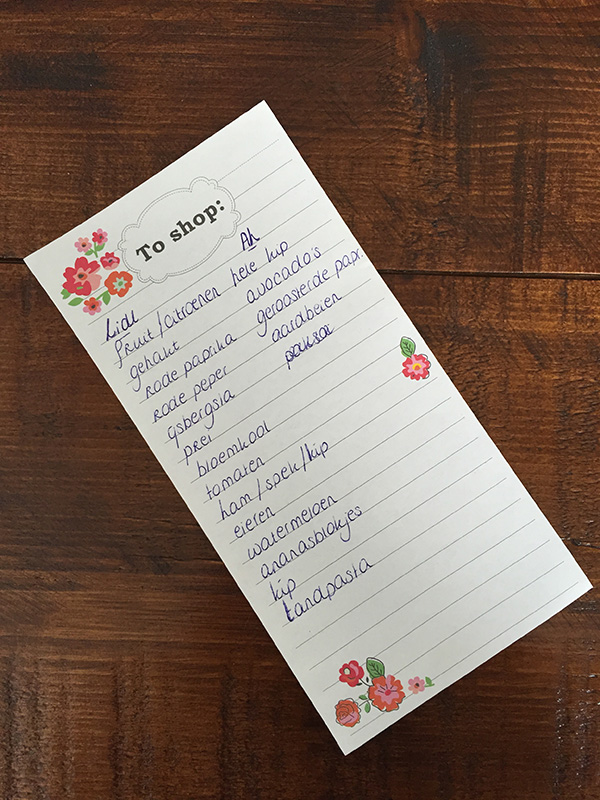 To shop:
Lidl
fruit/citroenen
gehakt
rode paprika
rode peper
ijsbergsla
prei
bloemkool
tomaten
ham/spek/kip
eieren
watermeloen
ananasblokjes
kip
tandpasta
AH
hele kip
avocado's
geroosterde papr.
aardbeien
paksoi